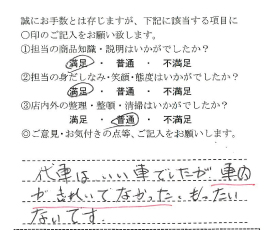 誠にお手数とは存じますが、下記に該当する項目に
〇印のご記入をお願い致します。
①担当の商品知識・説明はいかがでしたか？
満足 ・ 普通 ・ 不満足
②担当の身だしなみ・笑顔・態度はいかがでしたか？
満足 ・ 普通 ・ 不満足
③店内外の整理・整頓・清掃はいかがでしたか？
満足 ・ 普通 ・ 不満足
◎ご意見・お気付きの点等、ご記入をお願いします。
代車は、いい車でしたが車内
がきれいでなかった。もったい
ないです。